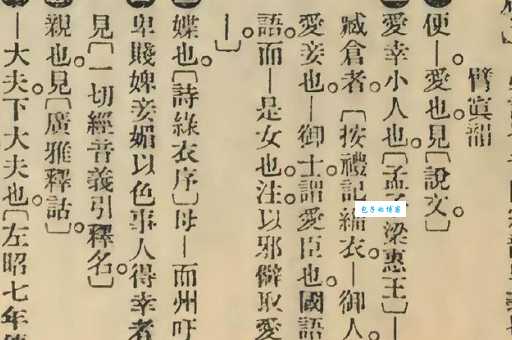 臂眞韻
便｜愛也見〔說文〕
愛幸小人也〔孟子梁惠王〕｜
臧倉者〔按禮記緇衣｜御人
愛妾也｜御士謂愛臣也國語
語而｜是女也注以邪僻取愛
｜〕
媟也〔詩綠衣序〕母｜而州吁
卑賤婢妾媚以色事人得幸者
見〔一切經音義引釋名〕
親也見〔廣雅釋詁〕
｜大夫下大夫也〔左昭七年傳
包子的博客